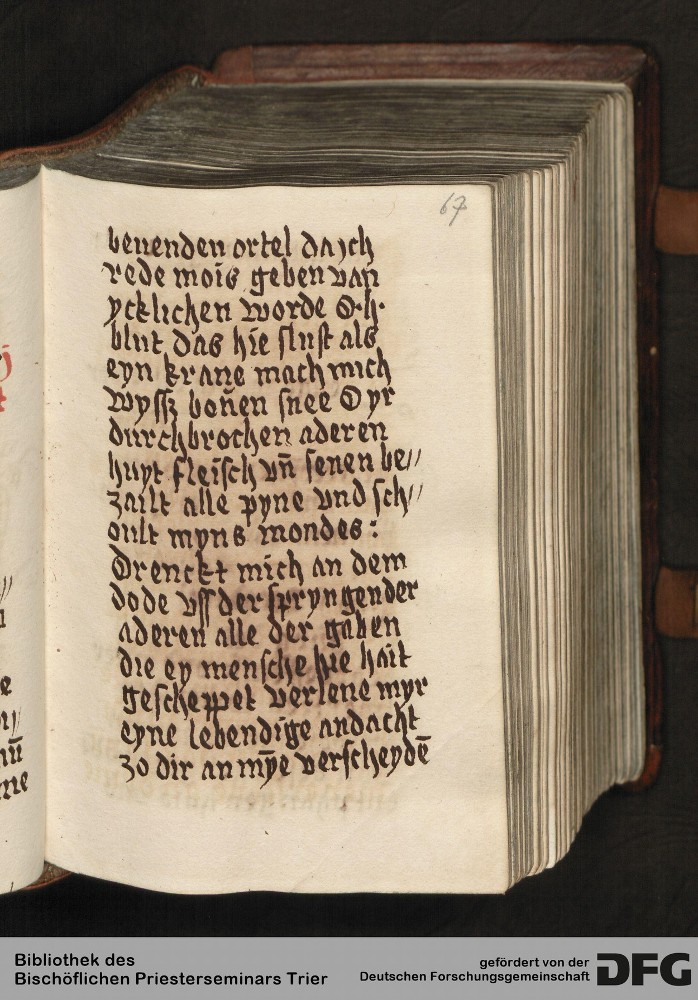 67
beuenden ortel da ich
rede mois geben van
ycklichen worde O.h.
blut das hie flust als
eyn krane mach mich
wyssz bouen snee O yr
durchbrochen aderen
huyt fleisch vn̄ senen be//
zailt alle pyne vnd sch//
oult myns mondes :
Drenckt mich an dem
dode vss der spryngender
aderen alle der gaben
die ey mensche hie hait
gescheppet verlene myr
eyne lebendige andacht
zo dir an mȳe verscheydē
Bibliothek des
Bischöflichen Priesterseminars Trier
gefördert von der
Deutschen Forschungsgemeinschaft
DFG